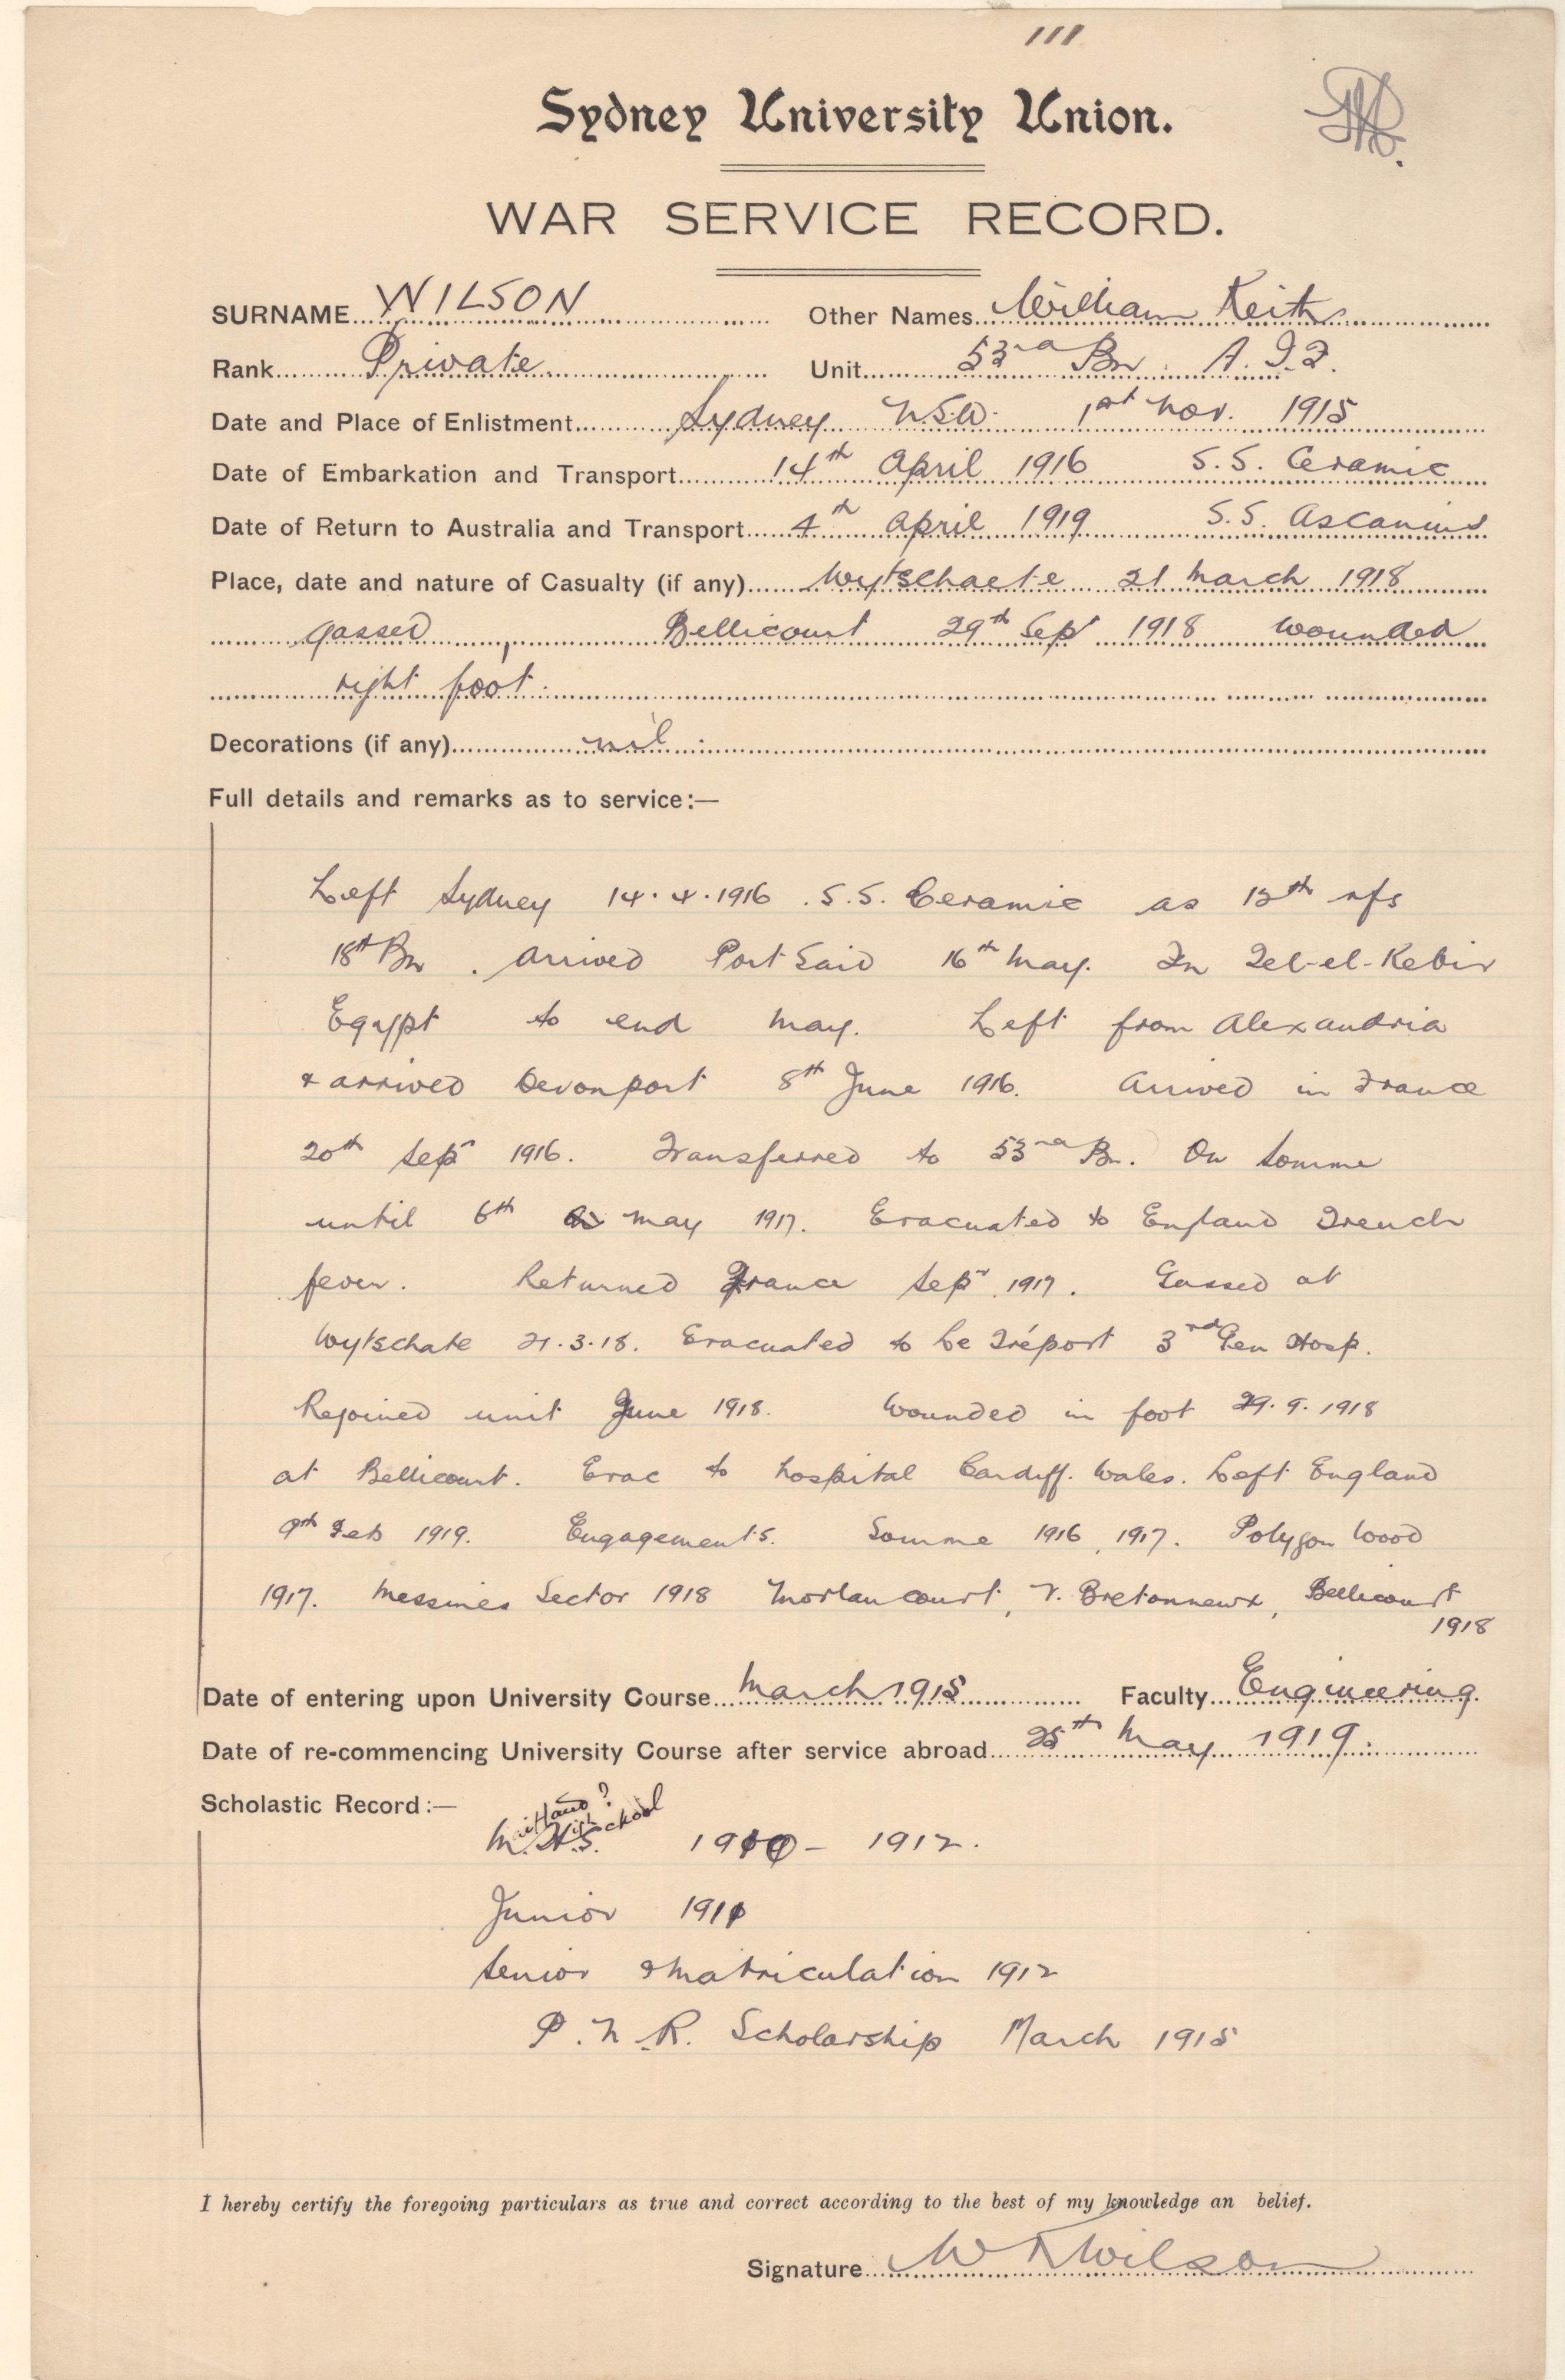 111
Sydney University Union.
WAR SERVICE RECORD.
SURNAME WILSON Other Names William Keith
Rank Private Unit 53rd Bn. A.I.F.
Date and Place of Enlistment Sydney N.S.W. 1st Nov. 1915
Date of Embarkation and Transport 14th April 1916 S.S. Ceramic
Date of Return to Australia and Transport 4th April 1919 S.S. Ascanius
Place, date and nature of Casualty (if any) Wytschaete 21 March 1918
gassed, Bellicourt 29th Sep 1918 wounded
right foot.
Decorations (if any) nil.
Full details and remarks as to service:—
Left Sydney 14.4.1916 S.S. Ceramic as 12th rfs
18th Bn. Arrived Port Said 16th May. In Tel-el-Kebir
Egypt to end May. Left from Alexandria
& arrived Devonport 8th June 1916. Arrived in France
20th Sepr 1916. Transferred to 53rd Bn. On Somme
until 6th May 1917. Evacuated to England Trench
fever. Returned France Sepr 1917. Gassed at
Wytschate 21.3.18. Evacuated to Le Tréport 3rd Gen Hosp.
Rejoined unit June 1918. Wounded in foot 29.9.1918
at Bellicourt. Evac to hospital Cardiff. Wales. Left England
9th Feb 1919. Engagements. Somme 1916, 1917. Polygon Wood
1917. Messines Sector 1918 Morlancourt, V. Bretonneux, Bellicourt
1918
Date of entering upon University Course March 1915 Faculty Engineering.
Date of re-commencing University Course after service abroad 25th May 1919.
Scholastic Record:—
Maitland?
High School
M.H.S. 1910 - 1912.
Junior 1911
Senior & Matriculation 1912
P.N.R. Scholarship March 1915
I hereby certify the foregoing particulars as true and correct according to the best of my knowledge an belief.
Signature W K Wilson